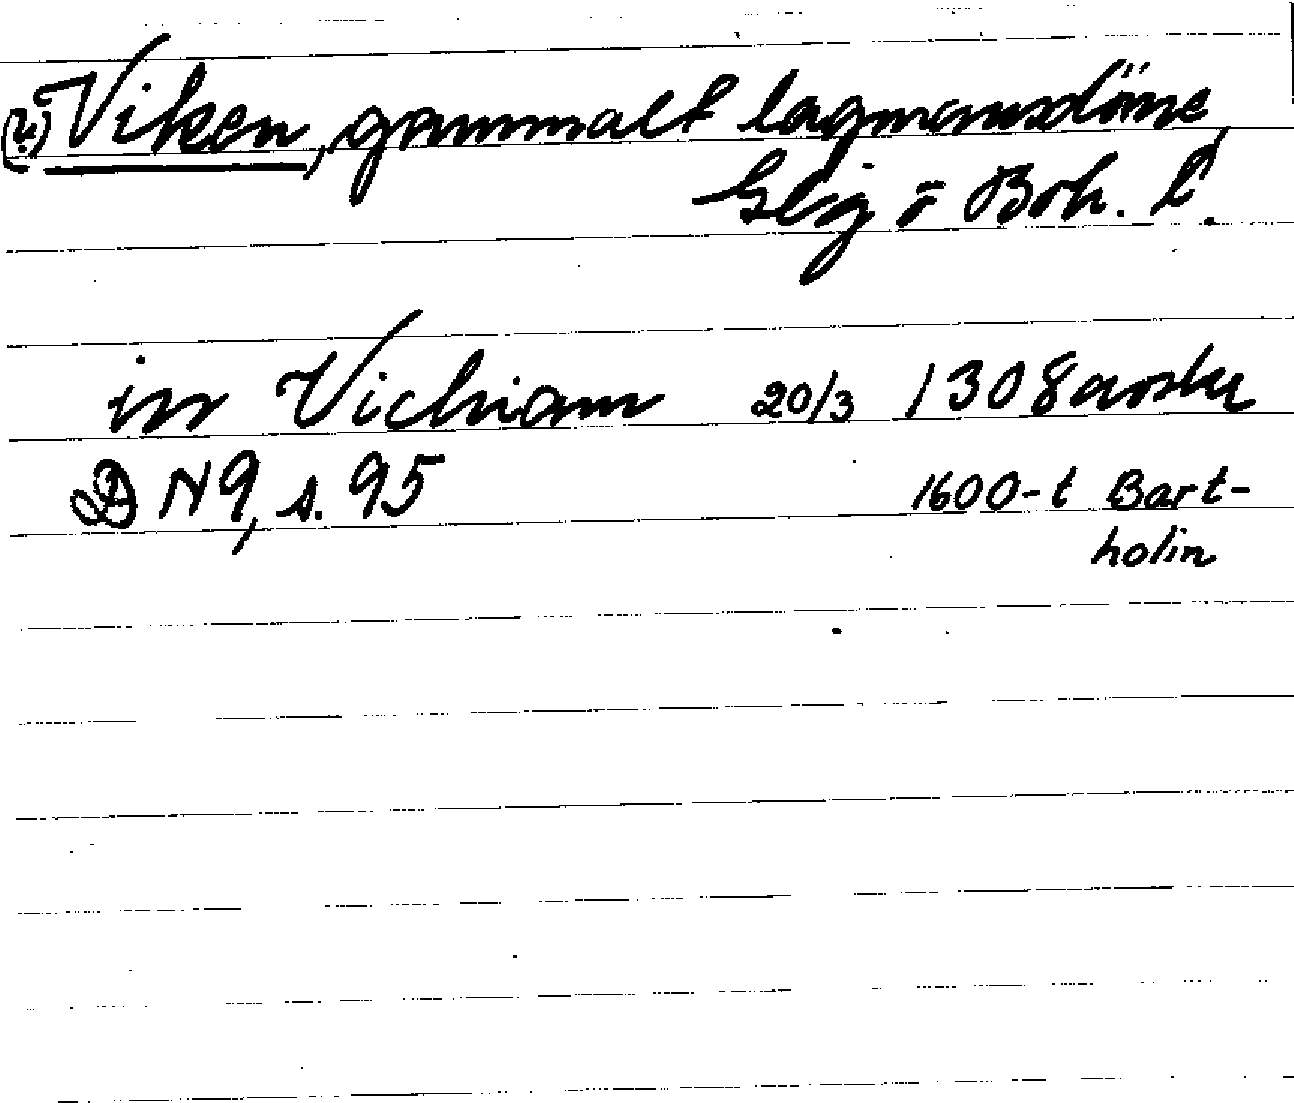 (?) Viken, gammalt lagmansdöme,
i Boh. l.
in Vichiam 20/3 1308 avskr
DN 9, s. 95 1600-t Bart-
holin